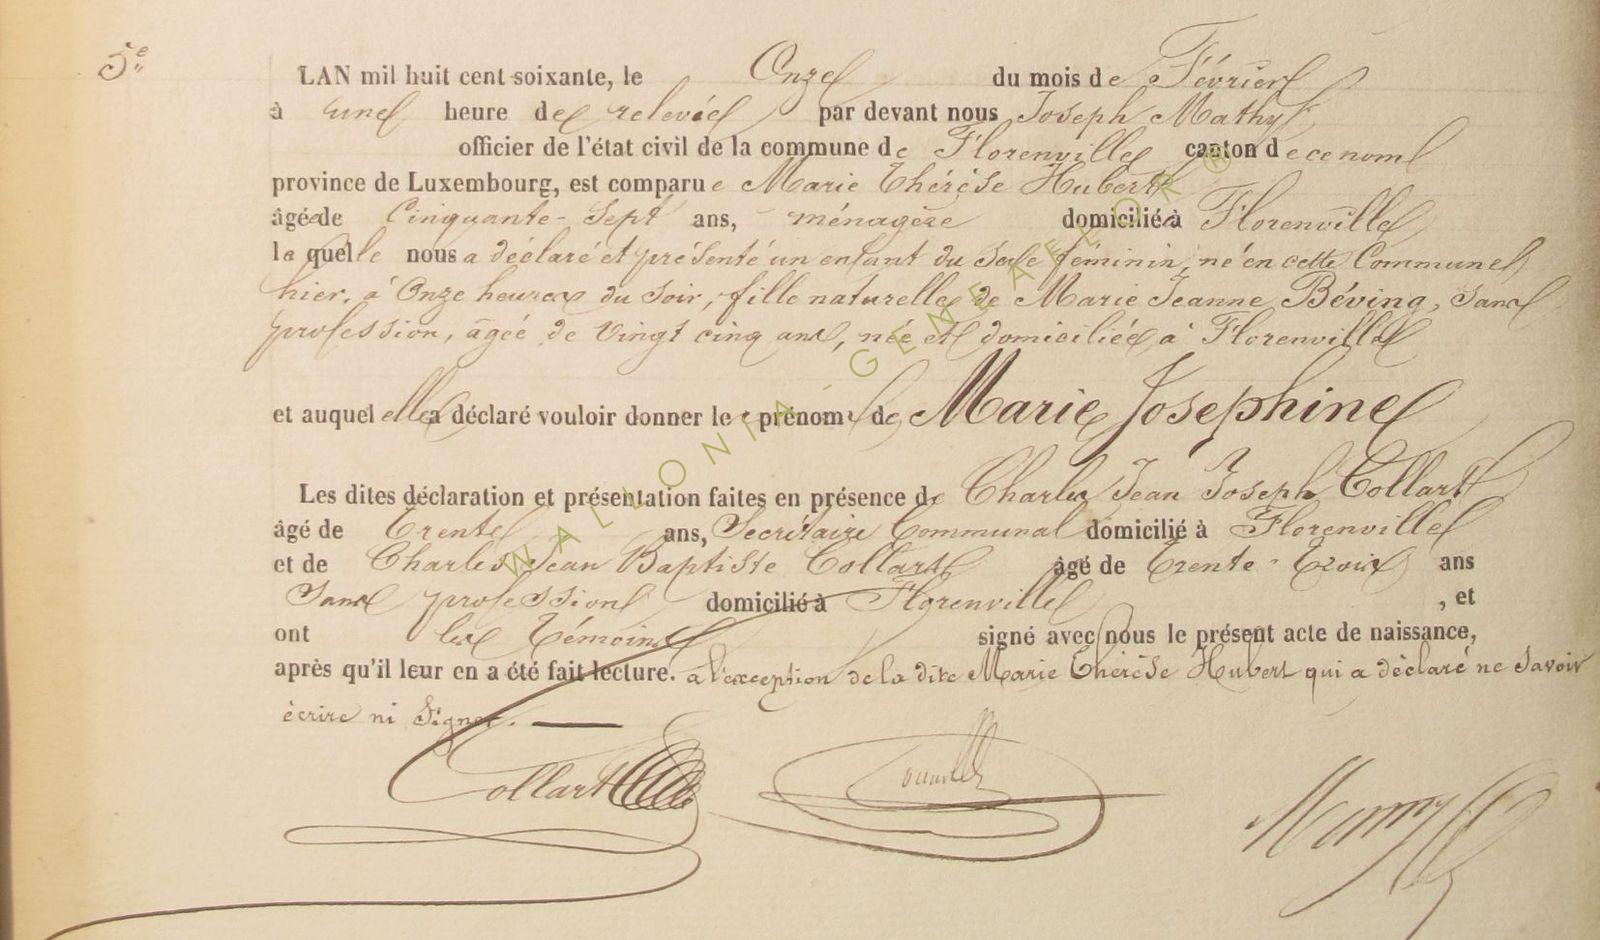 5e
LAN mil huit cent soixante, le Onze du mois de Février
à une heure de relevée par devant nous Joseph Mathy
officier de l'état civil de la commune de Florenville canton de ce nom
province de Luxembourg, est comparue Marie Thérèse Hubert
âgée de Cinquante-Sept ans, ménagère domiciliée à Florenville
la quelle nous a déclaré et présenté un enfant du Sexe féminin, né en cette Commune
hier, à Onze heures du soir, fille naturelle de Marie Jeanne Béving, Sans
profession, âgée de vingt cinq ans, née et domiciliée à Florenville
et auquel elle a déclaré vouloir donner les prénoms de Marie Josephine
Les dites déclaration et présentation faites en présence de Charles Jean Joseph Collart
âgé de Trente ans, Secrétaire Communal domicilié à Florenville
et de Charles Jean Baptiste Collart âgé de Trente-Trois ans
Sans profession domicilié à Florenville , et
ont les Témoins signé avec nous le présent acte de naissance,
après qu'il leur en a été fait lecture. à l'exception de la dite Marie Thérèse Hubert qui a déclaré ne Savoir
écrire ni Signer.
Collart
WALLONIA-GENEAFLOR®